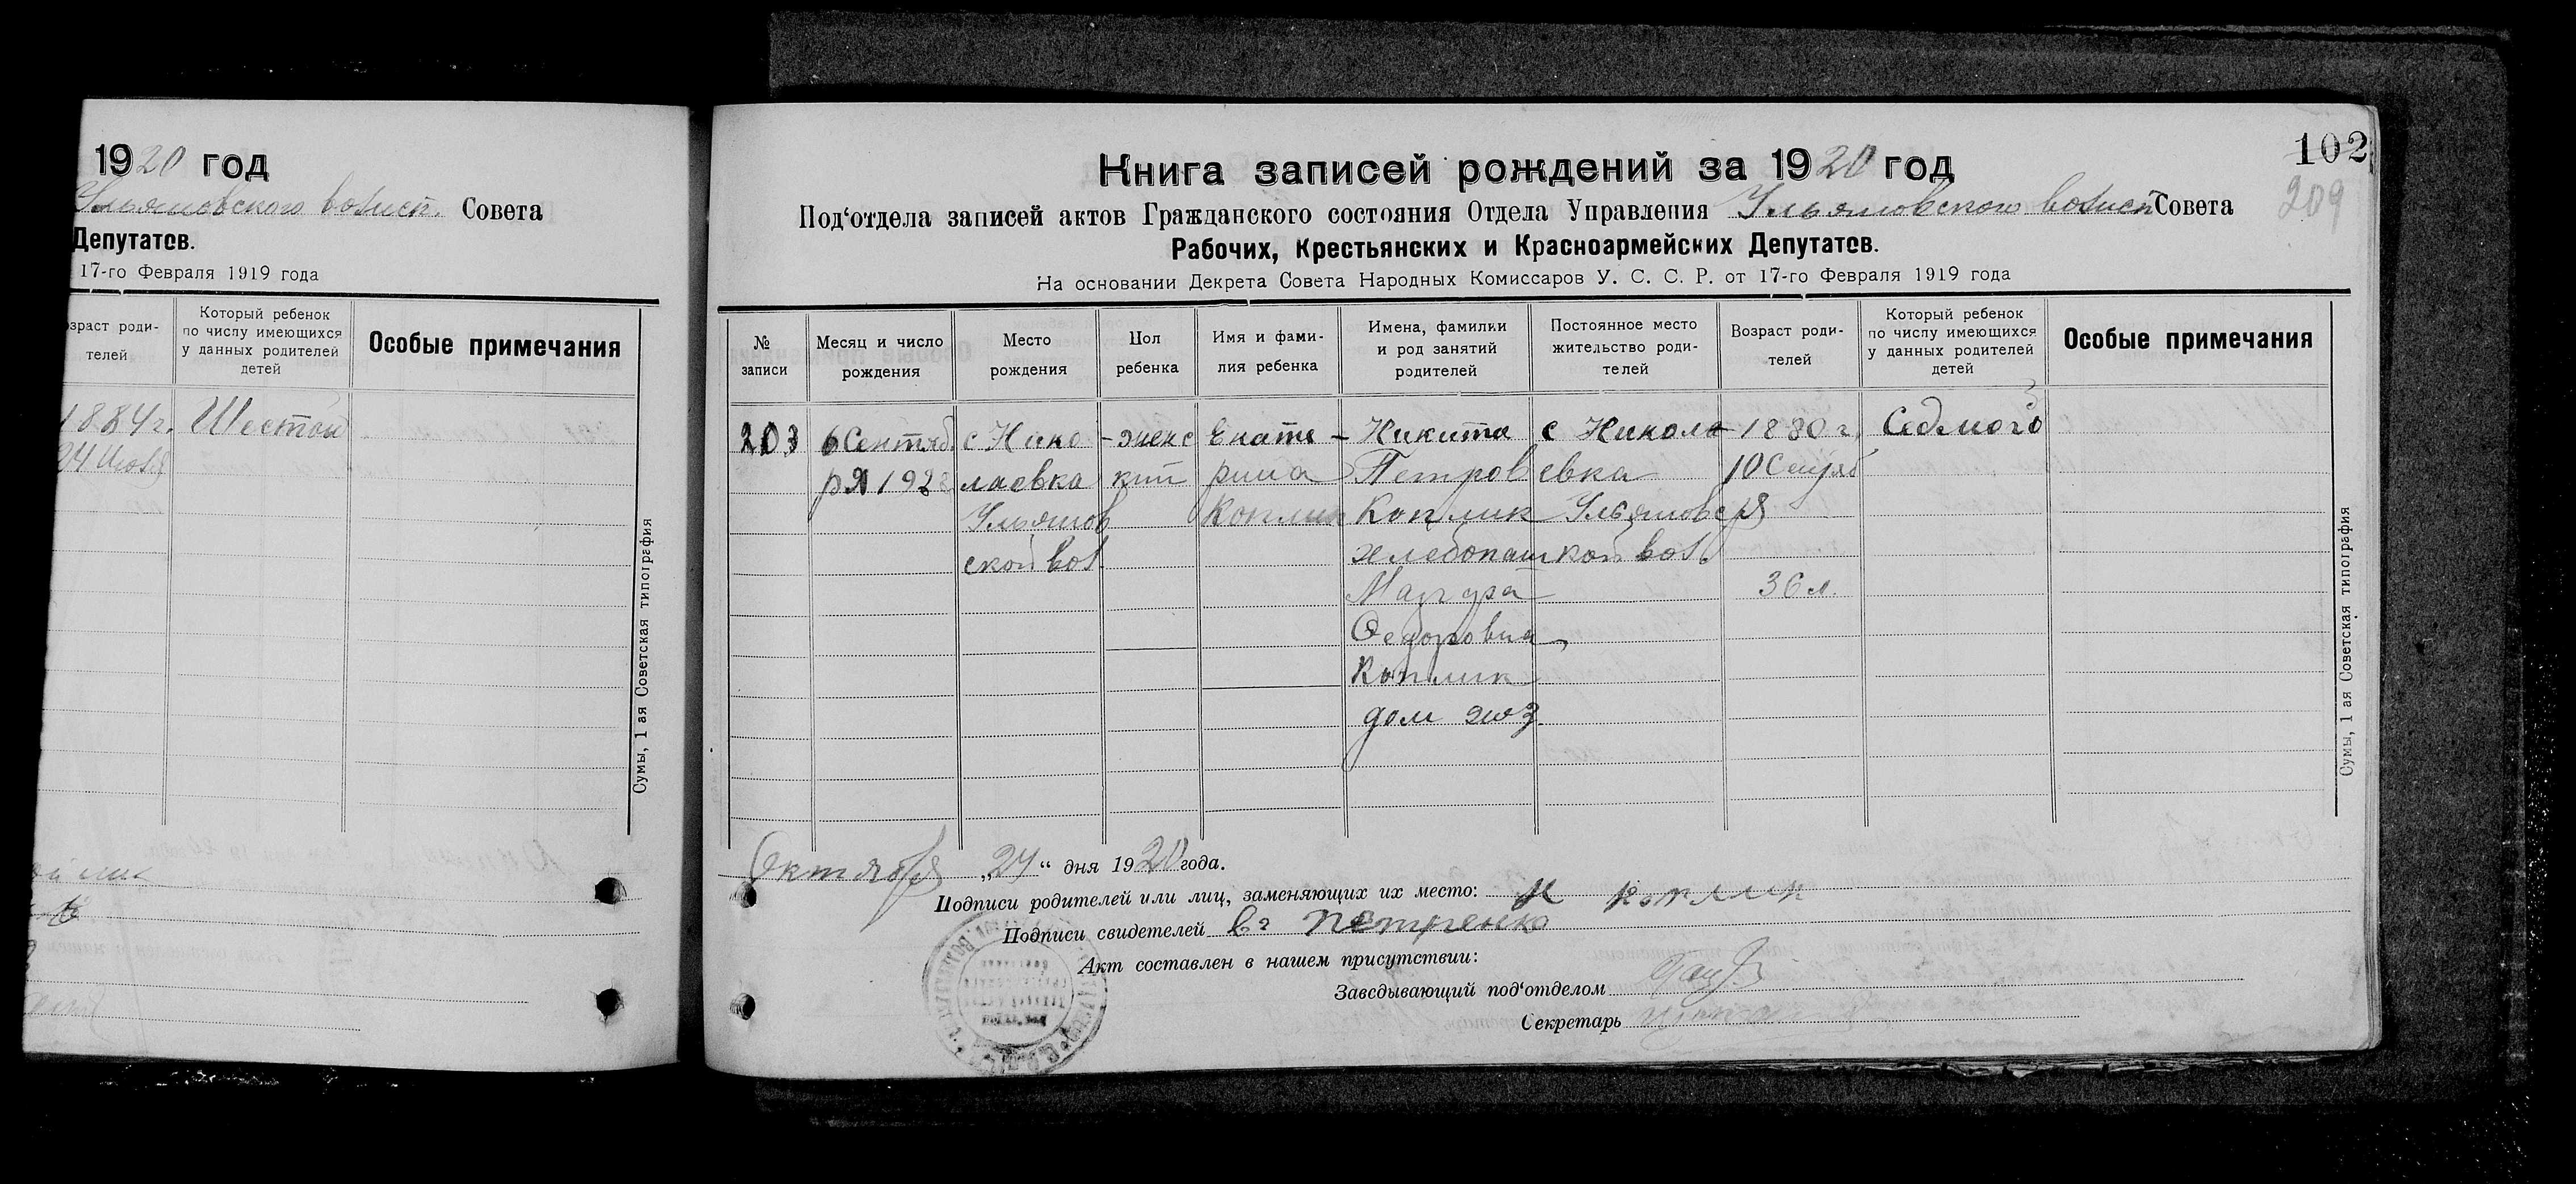 1920 год
Ульяновского волисп. Совета
Депутатов.
17-го Февраля 1919 года
зраст роди-
телей
Который ребенок
по числу имеющихся
у данных родителей
детей
Особые примечания
1884 г. Шестой
24 Июля
Сумы, 1 ая Советская типография
102
209
Книга записей рождений за 1920 год
Под‘отдела записей актов Гражданского состояния Отдела Управления Ульяновского волисп Совета
Рабочих, Крестьянских и Красноармейских Депутатов.
На основании Декрета Совета Народных Комиссаров У. С. С. Р. от 17-го Февраля 1919 года
№
записи
Месяц и число
рождения
Место
рождения
Пол
ребенка
Имя и фами-
лия ребенка
Имена, фамилии
и род занятий
родителей
Постоянное место
жительство роди-
телей
Возраст роди-
телей
Который ребенок
по числу имеющихся
у данных родителей
детей
Особые примечания
203 6 Сентяб с Нико- женс Екате- Никита с Никола- 1880 г. Седмого
ря лаевка кий рина Петров евка 10 Сентяб
Ульянов Коплик Коплик Ульяновс ря
ской вол. хлебопаш кой вол.
36 л.
Федоровна
Коплик
дом хоз
Сумы, 1 ая Советская типография
Октября „24“ дня 1920 года.
Подписи родителей или лиц, заменяющих их место: Н Коплик
Подписи свидетелей Вг Петренко
Акт составлен в нашем присутствии:
Заведывающий под‘отделом
Секретарь